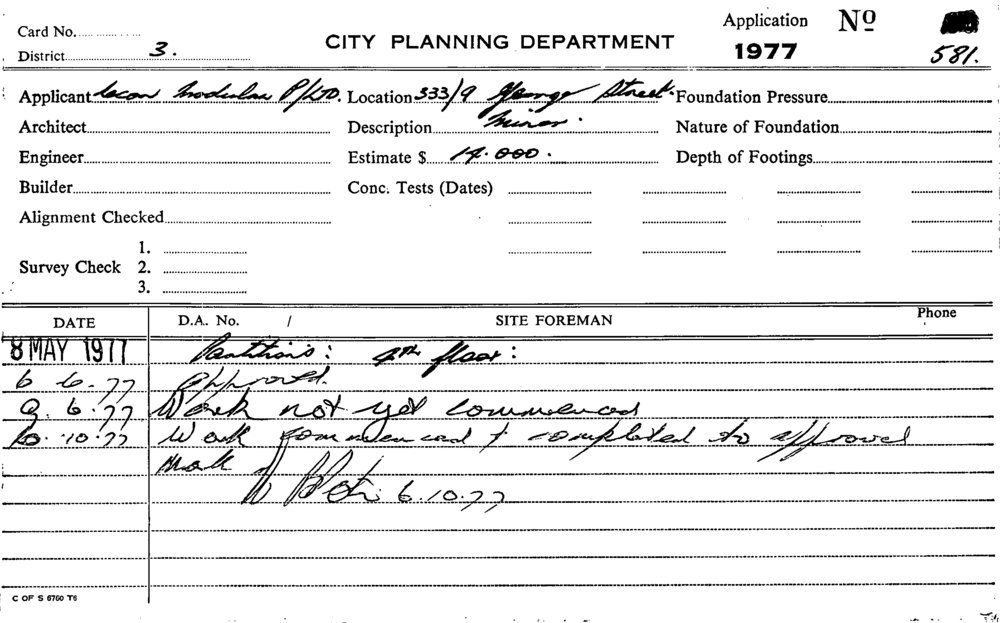 Card No.
District 3.
CITY PLANNING DEPARTMENT
Application Nº
1977
581.
Applicant Modular P/LTD. Location 333/9 George Street. Foundation Pressure
Architect Description Minor. Nature of Foundation
Engineer Estimate $ 14.000. Depth of Footings
Builder Conc. Tests (Dates)
Alignment Checked
Survey Check 1.
2.
3.
DATE D.A. No. / SITE FOREMAN Phone
8 MAY 1977 Partitions: 4th floor:
6 6.77 Approved.
9. 6.77 Work not yet commenced
10.77 Work commenced & completed to approval
6.10.77
C OF S 6760 T6